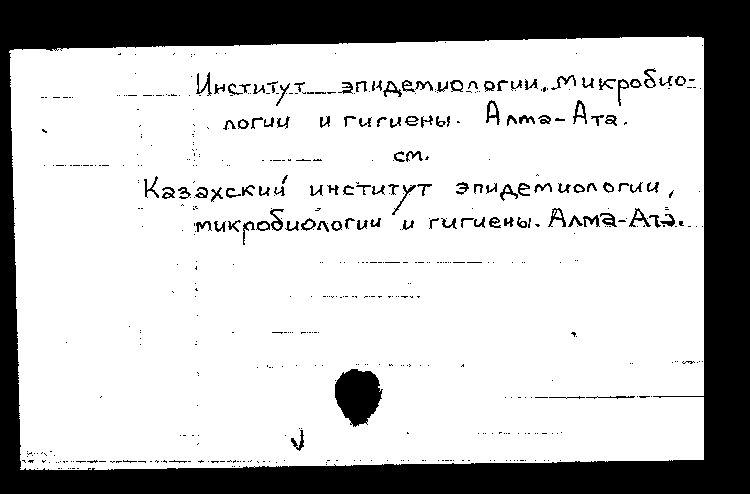 Институт эпидемиологии, микробио-
логии и гигиены. Алма-Ата.
см.
Казахский институт эпидемиологии,
микробиологии и гигиены. Алма-Ата.